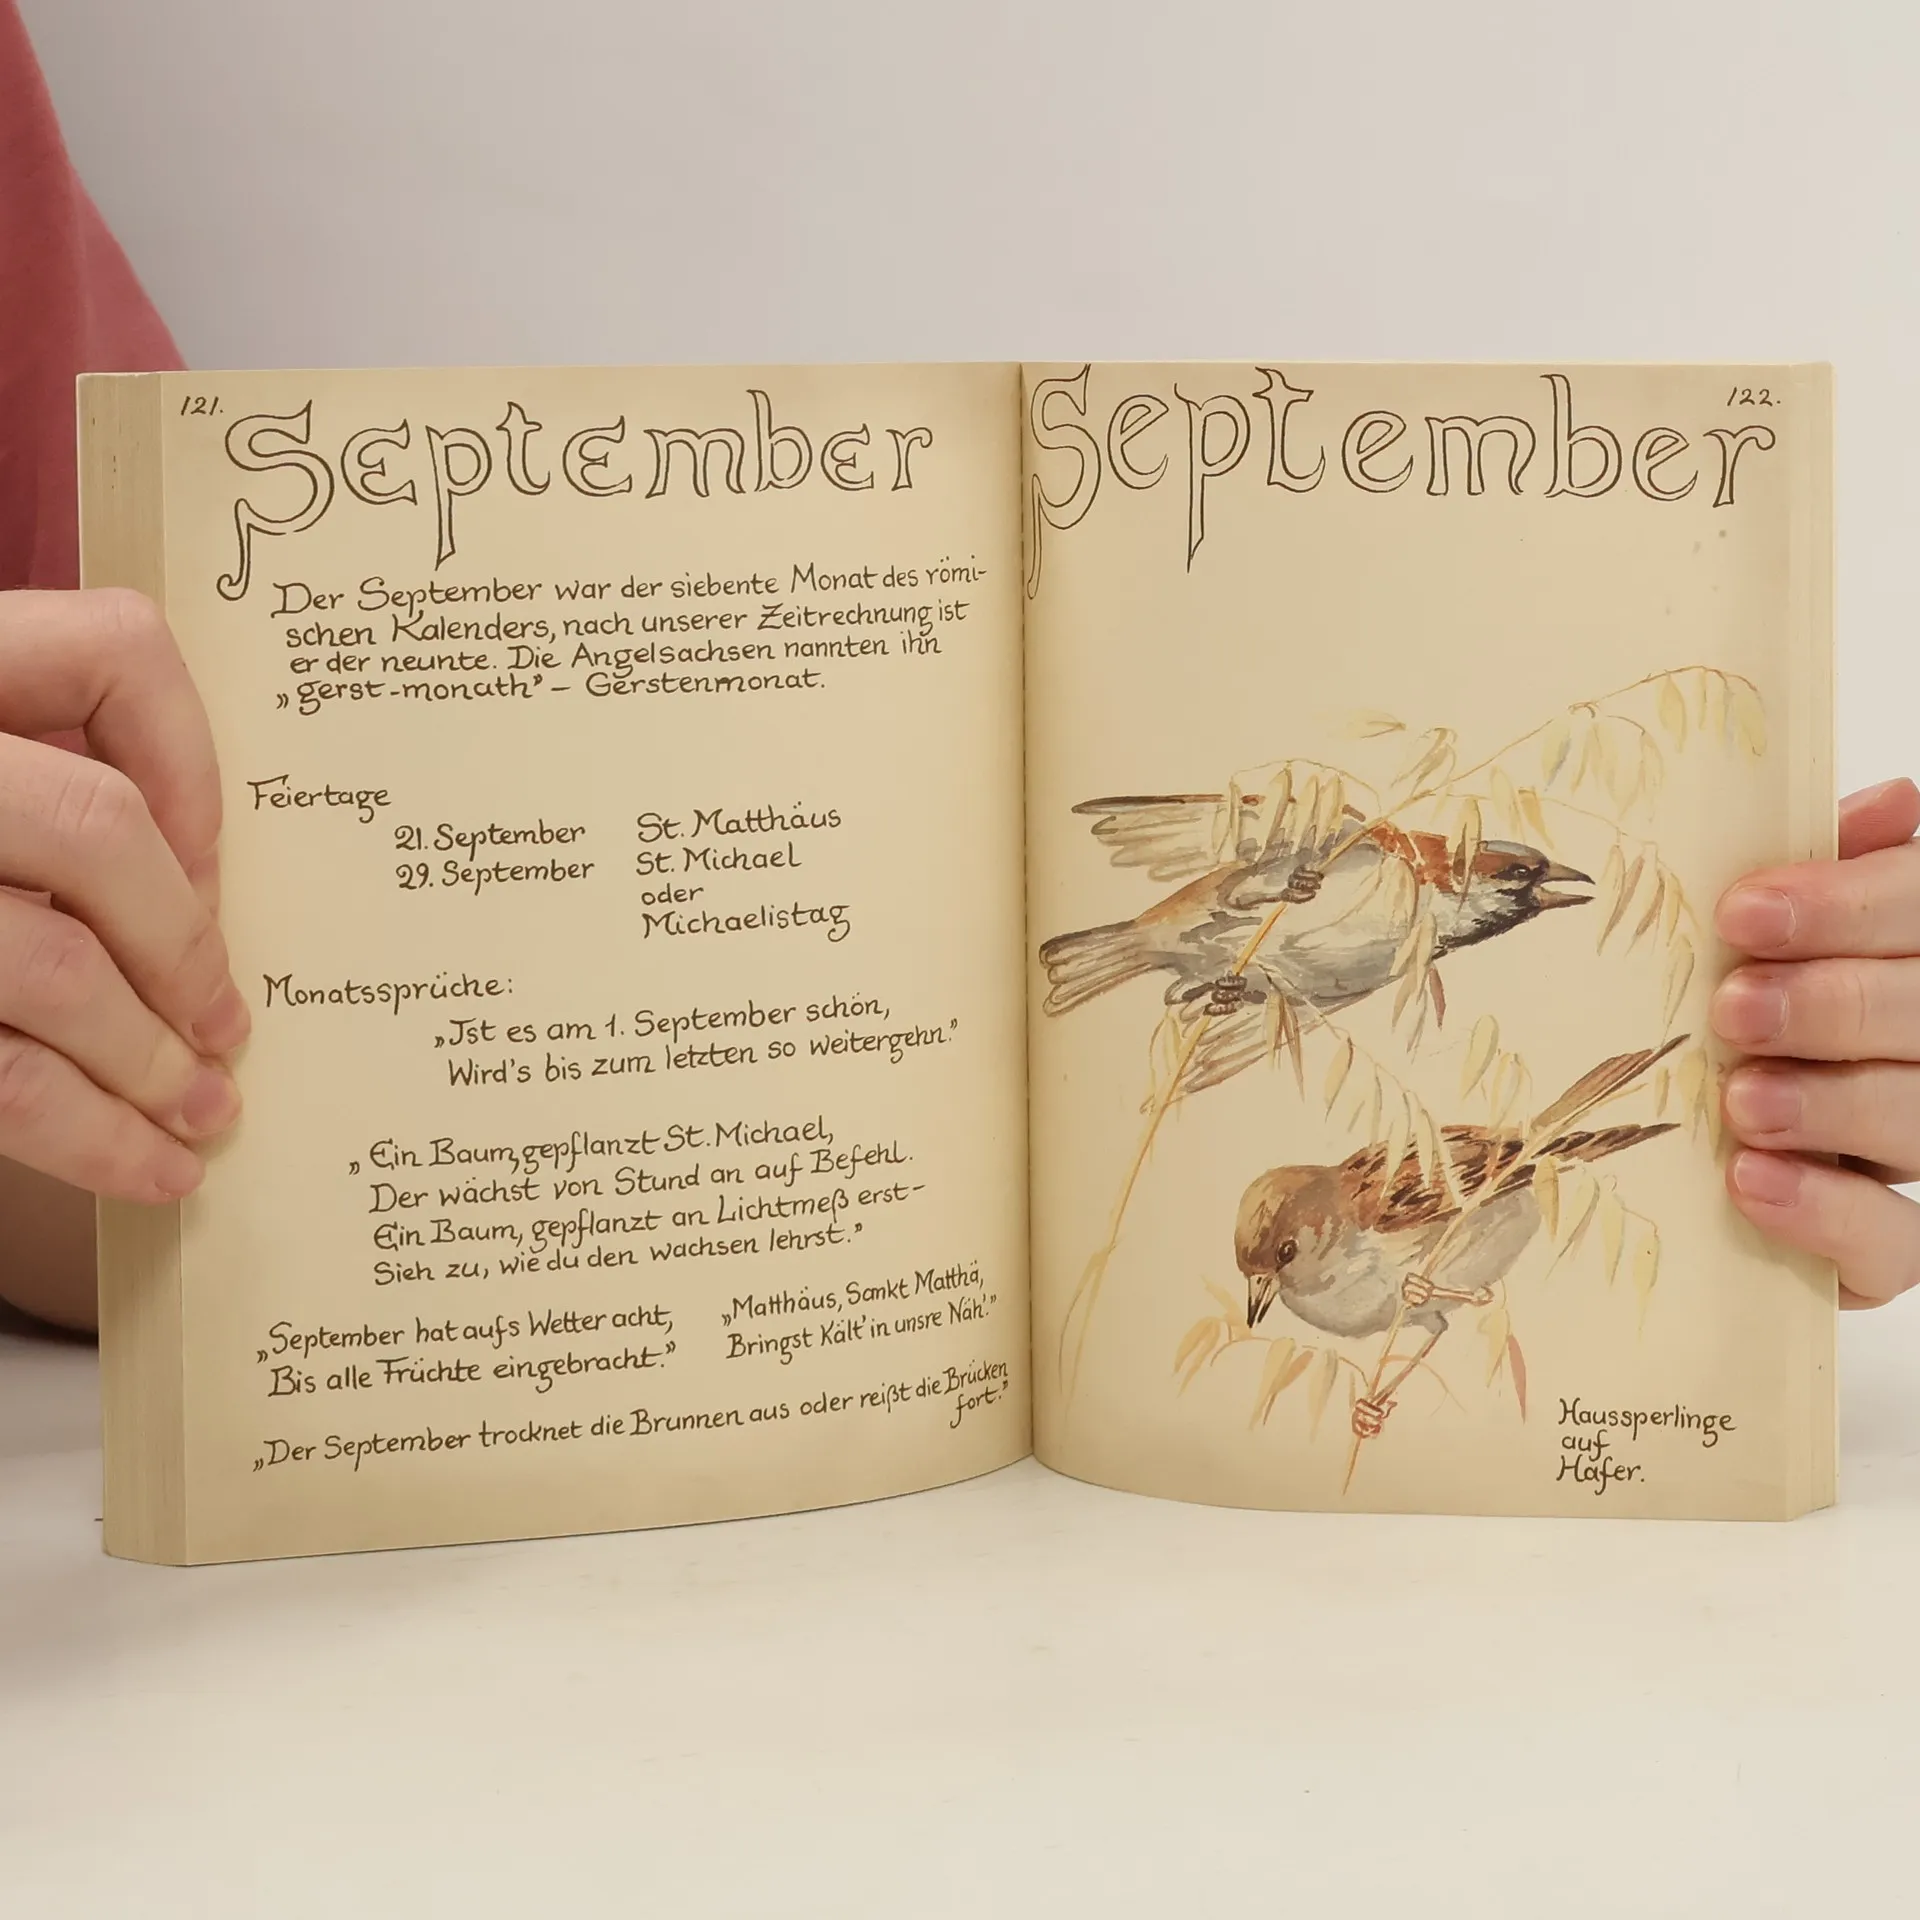 121.
September
Der September war der siebente Monat des römi-
schen Kalenders, nach unserer Zeitrechnung ist
er der neunte. Die Angelsachsen nannten ihn
„gerst-monath” – Gerstenmonat.
Feiertage
21. September St. Matthäus
29. September St. Michael
oder
Michaelistag
Monatssprüche:
„Ist es am 1. September schön,
Wird's bis zum letzten so weitergehn.”
„Ein Baum, gepflanzt St. Michael,
Der wächst von Stund an auf Befehl.
Ein Baum, gepflanzt an Lichtmeß erst–
Sieh zu, wie du den wachsen lehrst.”
„September hat aufs Wetter acht,
Bis alle Früchte eingebracht.”
„Matthäus, Sankt Matthä,
Bringst Kält' in unsre Näh'.”
„Der September trocknet die Brunnen aus oder reißt die Brücken
fort.”
122.
September
Haussperlinge
auf
Hafer.